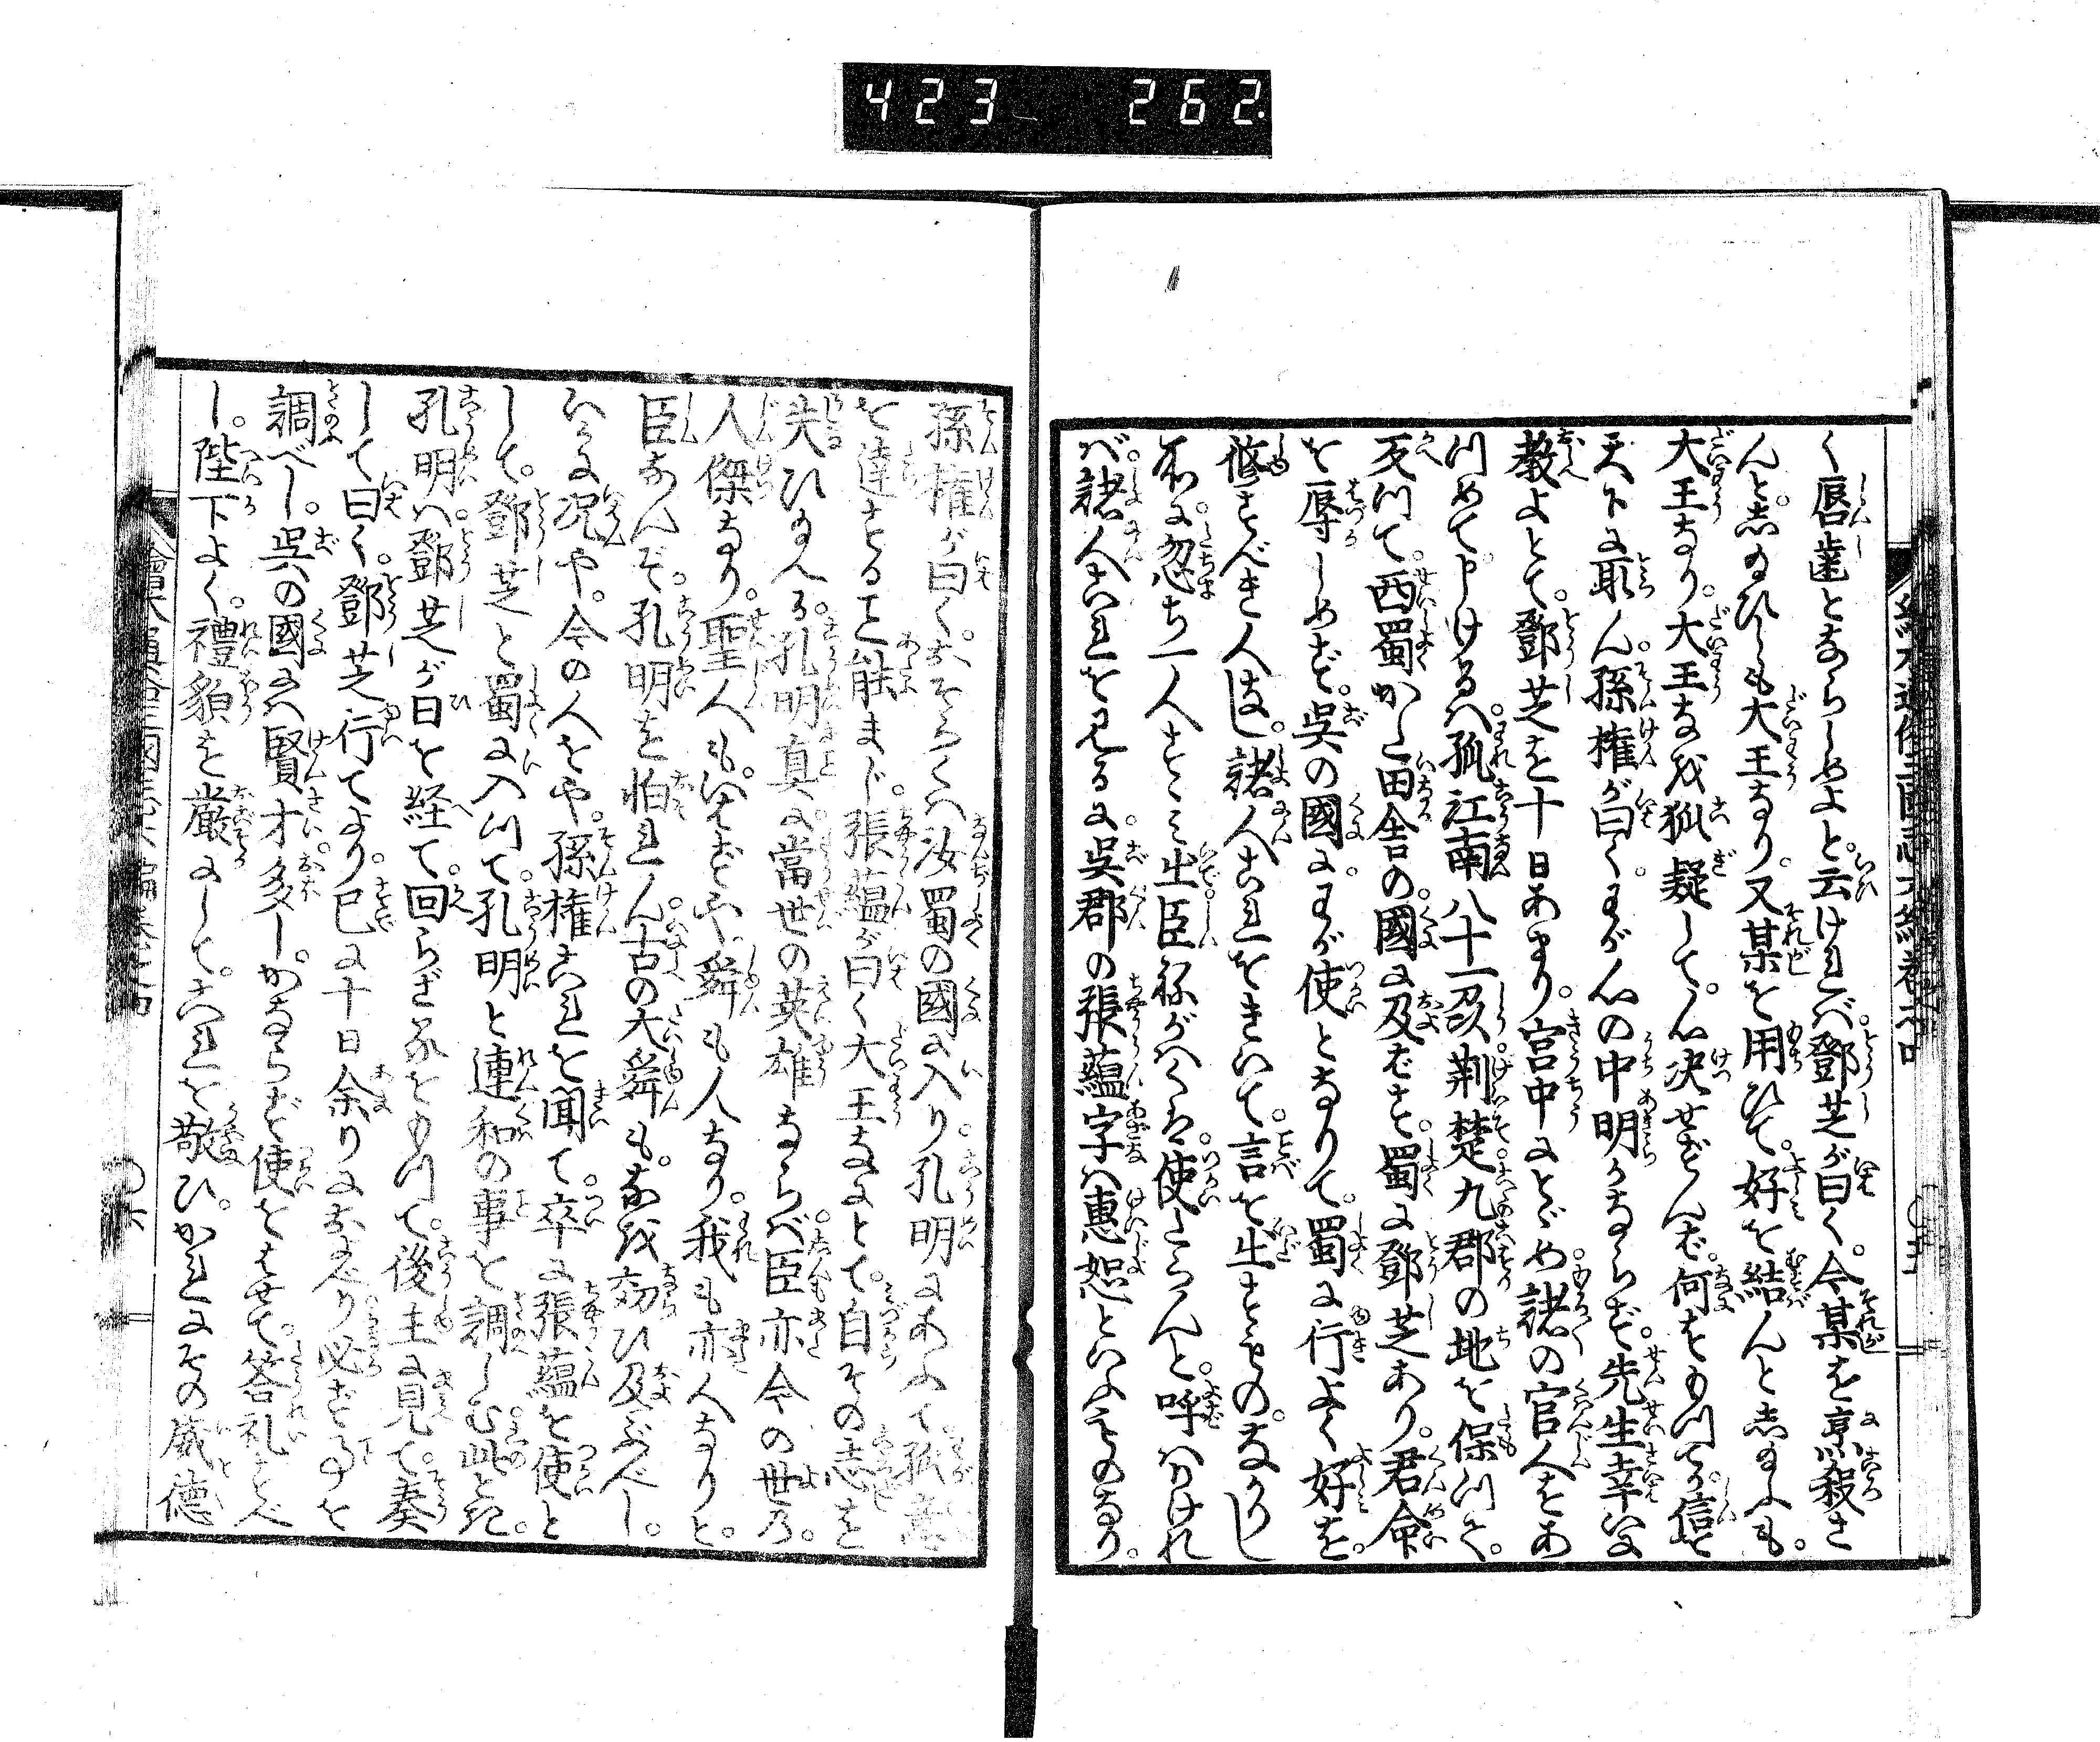 423 262.
く唇歯とならしめよと。云ければ。鄧芝が曰く。今某を烹殺さ
んと。志ゐひしも大王なり。又某を用ひて。好を結んと志ゐふも。
大王なり。大王なを狐疑して。心決せずんば。何をもつてか。信を
天下に取ん。孫権が曰く。わが心の中明かならず。先生幸に
教よとて。鄧芝を十日あまり。宮中にとゞめ。諸の官人をあ
つめて申けるハ。孤江南八十一刕。荊楚九郡の地を保つさへ。
反つて。西蜀かた田舎の。國に及ばす。蜀に鄧芝あり。君命
を辱しめず。呉の國に。わが使となりて。蜀に行よく好を。
修すべき人はなし。諸人これをきいて。言を出すもの。なかりし
ホに。忽ち一人すゝミ出。臣ねがハくは。使たらんと。呼ハりけれ
ば。諸人これを見るに。呉郡の張蘊字ハ恵恕といふものなり。
孫権が曰く。おそらくハ汝蜀の國に入り。孔明にあふて。孤意
を達することあ能まじ。張蘊が曰く大王なにとて。自その志を
失ひ給ふ。孔明真に當世の英雄ならば。臣亦今の世乃。
人傑なり。聖人も。いはずや。舜も人なり。我も亦人なりと。
臣なんぞ。孔明を怕れん。古の大舜も。なを効ひ及ぶべし。
いかに况や。今の人をや。孫権これを聞て。卒に張蘊を使と
して。鄧芝と蜀に入つて。孔明と連和の事を調しむ。此とき。
孔明ハ。鄧芝が日を経て。回らざるをもつて。後主に見て。奏
して曰く。鄧芝行てより。已に十日余りにおよべり必ず事を
調べし。呉の國にハ賢才多し。かならず使をはせて。答礼すべ
し。陛下よく。禮貌を厳にして。これを敬ひ。かれにその威德